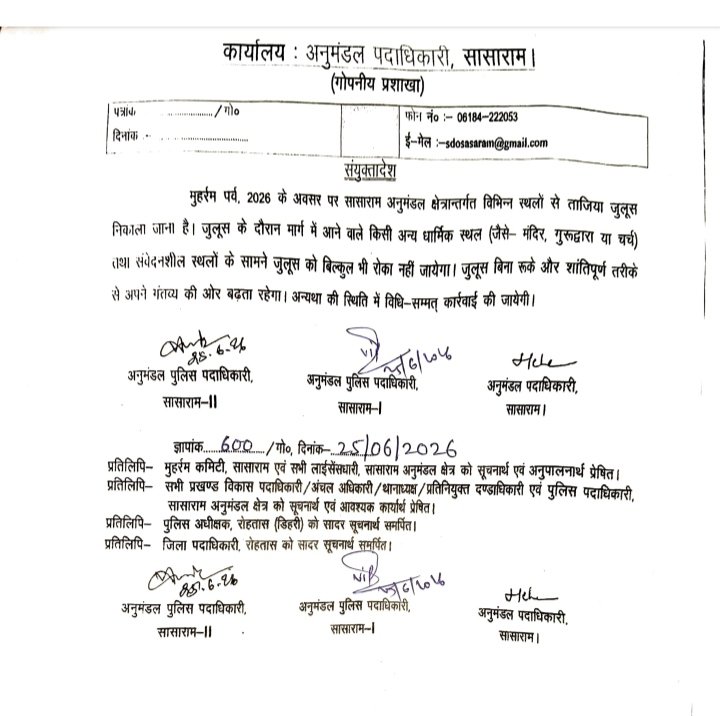 कार्यालय : अनुमंडल पदाधिकारी, सासाराम।
(गोपनीय प्रशाखा)
पत्रांक ..................../गो०
दिनांक :- ..............................
फोन नं० :– 06184–222053
ई–मेल :–sdosasaram@gmail.com
संयुक्तादेश
मुहर्रम पर्व, 2026 के अवसर पर सासाराम अनुमंडल क्षेत्रान्तर्गत विभिन्न स्थलों से ताजिया जुलूस
निकाला जाना है। जुलूस के दौरान मार्ग में आने वाले किसी अन्य धार्मिक स्थल (जैसे– मंदिर, गुरूद्वारा या चर्च)
तथा संवेदनशील स्थलों के सामने जुलूस को बिल्कुल भी रोका नहीं जायेगा। जुलूस बिना रूके और शांतिपूर्ण तरीके
से अपने गंतव्य की ओर बढ़ता रहेगा। अन्यथा की स्थिति में विधि–सम्मत् कार्रवाई की जायेगी।
25.6.26
25/6/2026
अनुमंडल पुलिस पदाधिकारी,
सासाराम–II
अनुमंडल पुलिस पदाधिकारी,
सासाराम–I
अनुमंडल पदाधिकारी,
सासाराम।
ज्ञापांक.....600...../गो०, दिनांक–25/06/2026
प्रतिलिपि– मुहर्रम कमिटी, सासाराम एवं सभी लाईसेंसधारी, सासाराम अनुमंडल क्षेत्र को सूचनार्थ एवं अनुपालनार्थ प्रेषित।
प्रतिलिपि– सभी प्रखण्ड विकास पदाधिकारी/अंचल अधिकारी/थानाध्यक्ष/प्रतिनियुक्त दण्डाधिकारी एवं पुलिस पदाधिकारी,
सासाराम अनुमंडल क्षेत्र को सूचनार्थ एवं आवश्यक कार्यार्थ प्रेषित।
प्रतिलिपि– पुलिस अधीक्षक, रोहतास (डिहरी) को सादर सूचनार्थ समर्पित।
प्रतिलिपि– जिला पदाधिकारी, रोहतास को सादर सूचनार्थ समर्पित।
25.6.26
25/6/2026
अनुमंडल पुलिस पदाधिकारी,
सासाराम–II
अनुमंडल पुलिस पदाधिकारी,
सासाराम–I
अनुमंडल पदाधिकारी,
सासाराम।